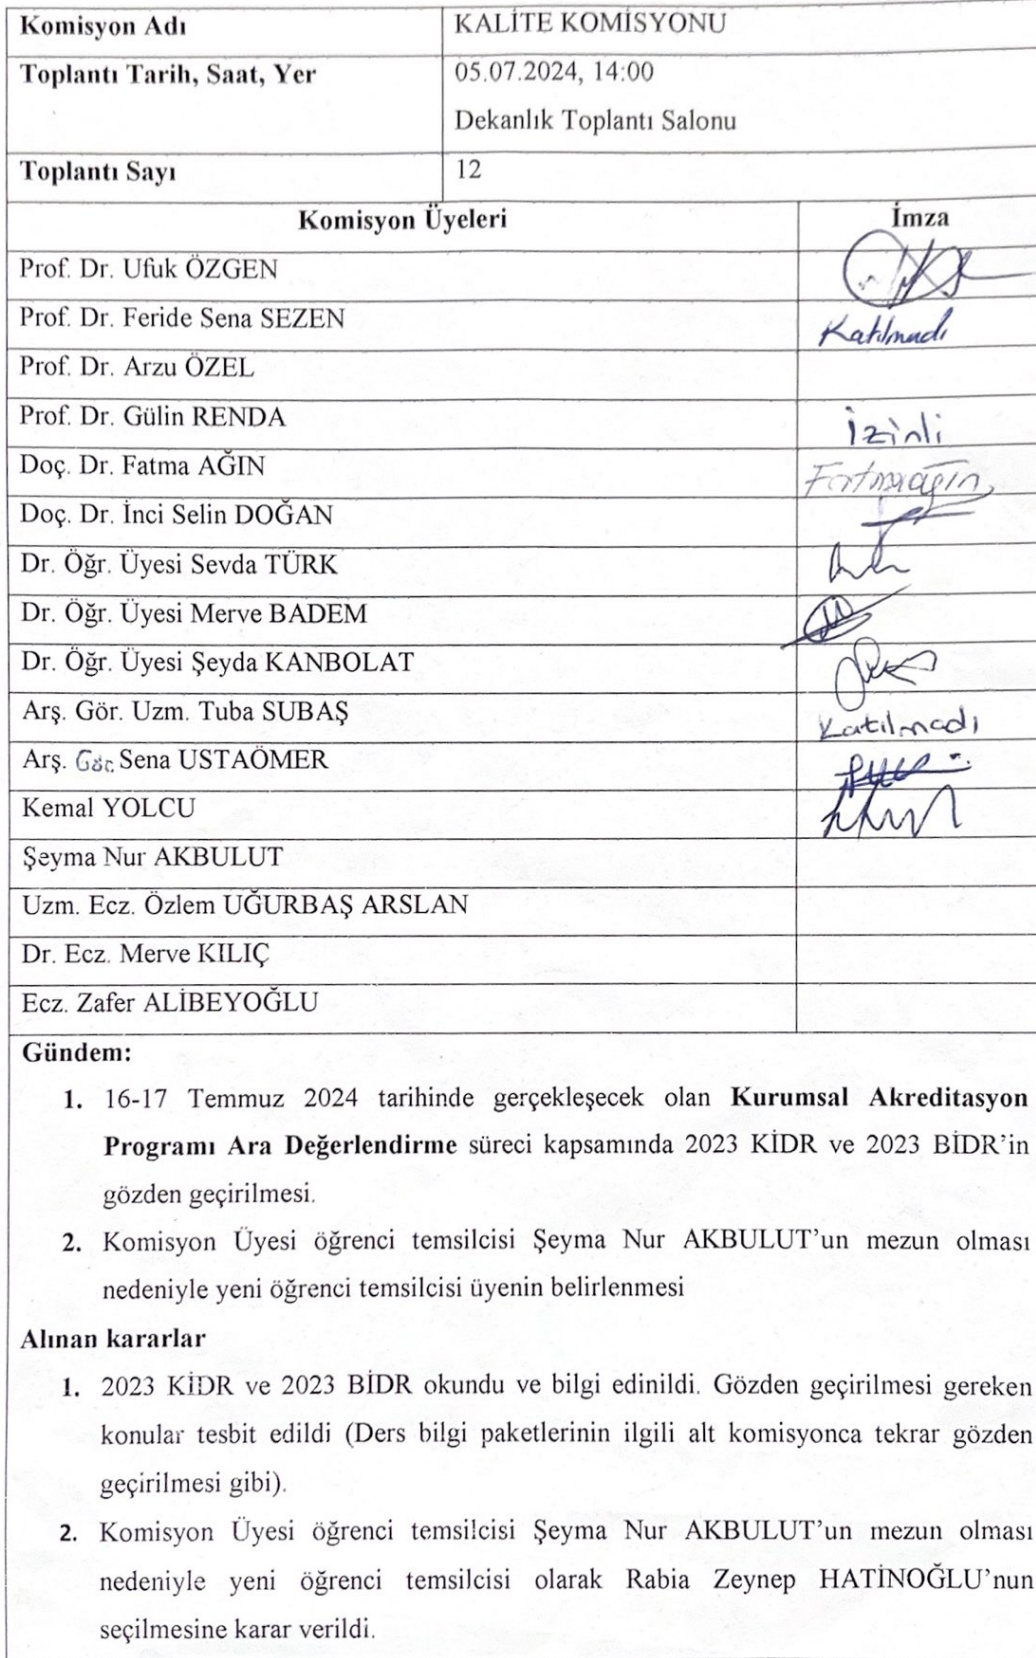 Komisyon Adı KALİTE KOMİSYONU
Toplantı Tarih, Saat, Yer 05.07.2024, 14:00
Dekanlık Toplantı Salonu
Toplantı Sayı 12
Komisyon Üyeleri İmza
Prof. Dr. Ufuk ÖZGEN
Prof. Dr. Feride Sena SEZEN Katılmadı
Prof. Dr. Arzu ÖZEL
Prof. Dr. Gülin RENDA İzinli
Doç. Dr. Fatma AĞIN Fatma Ağın
Doç. Dr. İnci Selin DOĞAN
Dr. Öğr. Üyesi Sevda TÜRK
Dr. Öğr. Üyesi Merve BADEM
Dr. Öğr. Üyesi Şeyda KANBOLAT
Arş. Gör. Uzm. Tuba SUBAŞ Katılmadı
Arş. Gör. Sena USTAÖMER
Kemal YOLCU
Şeyma Nur AKBULUT
Uzm. Ecz. Özlem UĞURBAŞ ARSLAN
Dr. Ecz. Merve KILIÇ
Ecz. Zafer ALİBEYOĞLU
Gündem:
1. 16-17 Temmuz 2024 tarihinde gerçekleşecek olan Kurumsal Akreditasyon
Programı Ara Değerlendirme süreci kapsamında 2023 KİDR ve 2023 BİDR’in
gözden geçirilmesi.
2. Komisyon Üyesi öğrenci temsilcisi Şeyma Nur AKBULUT’un mezun olması
nedeniyle yeni öğrenci temsilcisi üyenin belirlenmesi
Alınan kararlar
1. 2023 KİDR ve 2023 BİDR okundu ve bilgi edinildi. Gözden geçirilmesi gereken
konular tesbit edildi (Ders bilgi paketlerinin ilgili alt komisyonca tekrar gözden
geçirilmesi gibi).
2. Komisyon Üyesi öğrenci temsilcisi Şeyma Nur AKBULUT’un mezun olması
nedeniyle yeni öğrenci temsilcisi olarak Rabia Zeynep HATİNOĞLU’nun
seçilmesine karar verildi.